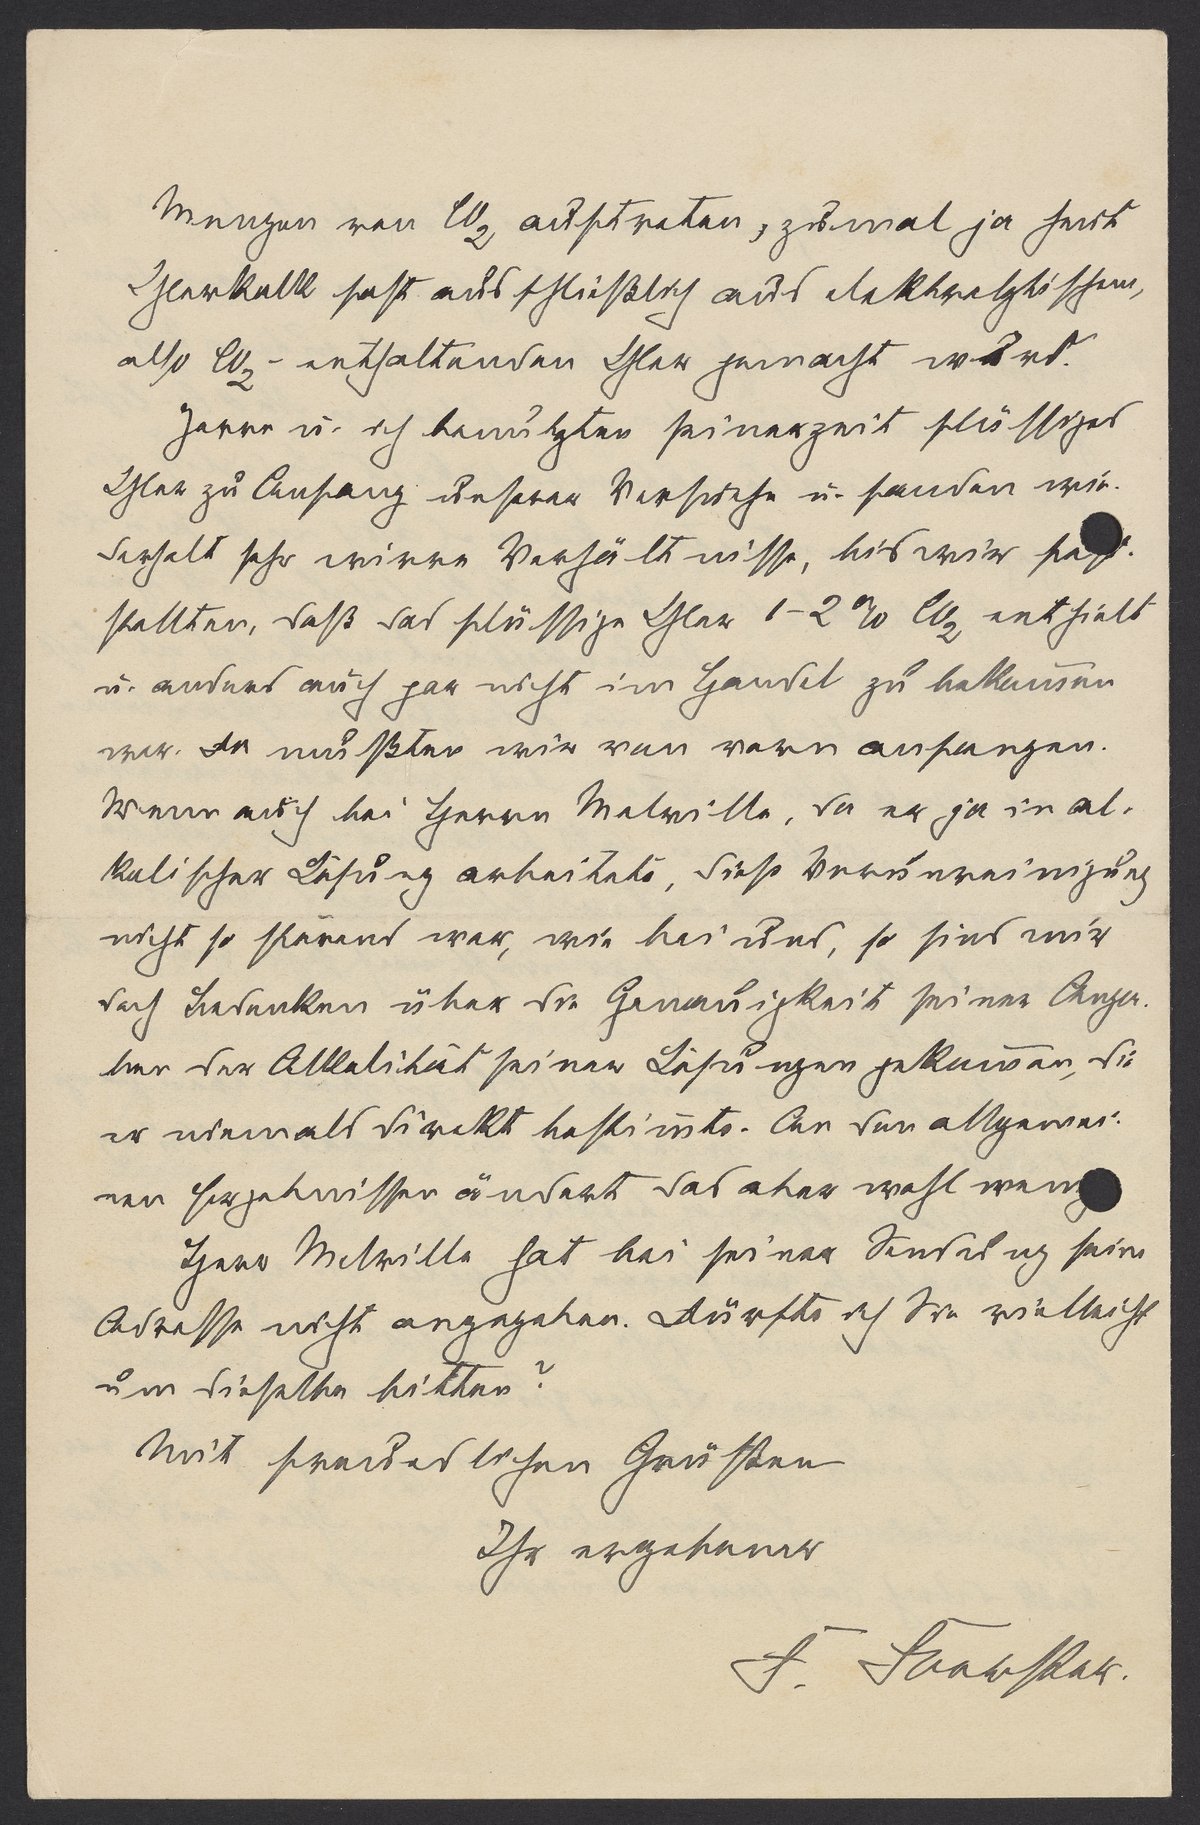 Mengen von CO2 auftreten, zumal ja heut
Chlorkalk fast ausschließlich aus elektrolytischem,
also CO2-enthaltenden Chlor gemacht wird.
Jorre u. ich benutzten seinerzeit flüssiges
Chlor zu Anfang unserer Versuche u. fanden wie-
derholt sehr wirre Verhältnisse, bis wir fest-
stellten, daß das flüssige Chlor 1–2 % CO2 enthielt
u. anders auch gar nicht im Handel zu bekommen
war. Da mußten wir von vorn anfangen.
Wenn auch bei Herrn Melville, da er ja in al-
kalischer Lösung arbeitete, diese Verunreinigung
nicht so störend war, wie bei uns, so sind mir
doch Bedenken über die Genauigkeit seiner Anga-
ben der Alkalität seiner Lösungen gekommen, die
er niemals direkt bestimmte. An den allgemei-
nen Ergebnissen ändert das aber wohl wenig
Herr Melville hat bei seiner Sendung seine
Adresse nicht angegeben. Dürfte ich Sie vielleicht
um dieselbe bitten?
Mit freundlichen Grüßen
Ihr ergebener
F. Foerster.